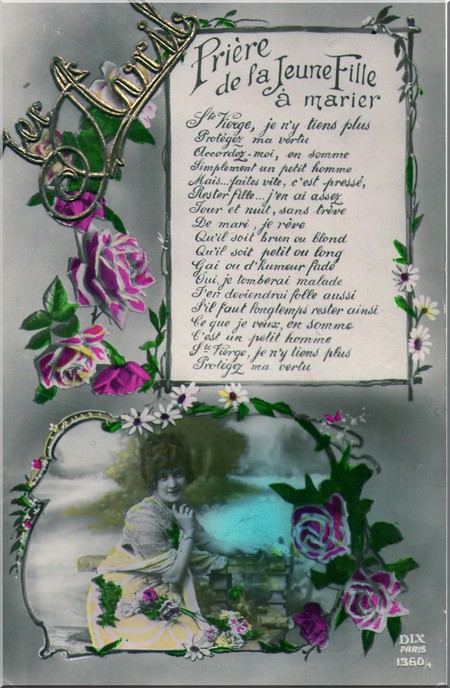 1er Avril
Prière
de la Jeune Fille
à marier
Ste Vierge, je n'y tiens plus
Protégez ma vertu
Accordez-moi, en somme
Simplement un petit homme
Mais... faites vite, c'est pressé,
Rester fille... j'en ai assez
Jour et nuit, sans trève
De mari, je rève
Qu'il soit brun ou blond
Qu'il soit petit ou long
Gai ou d'humeur fade
Oui, je tomberai malade
J'en deviendrai folle aussi
S'il faut longtemps rester ainsi
Ce que je veux, en somme
C'est un petit homme
Ste Vierge, je n'y tiens plus
Protégez ma vertu
DIX
PARIS
1360/4